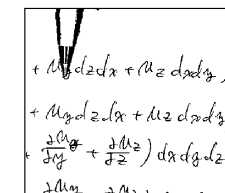 + u_y dzdx + u_z dxdy,
+ u_y dzdx + u_z dxdy
+ ∂u_y/∂y + ∂u_z/∂z ) dxdydz
∂u_y ∂u_z